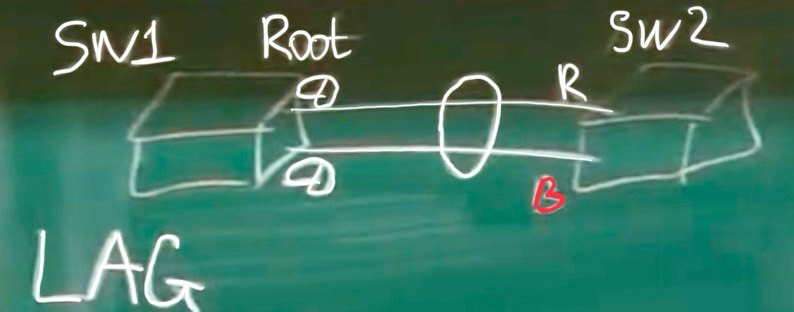 SW1 Root SW2
R
B
LAG